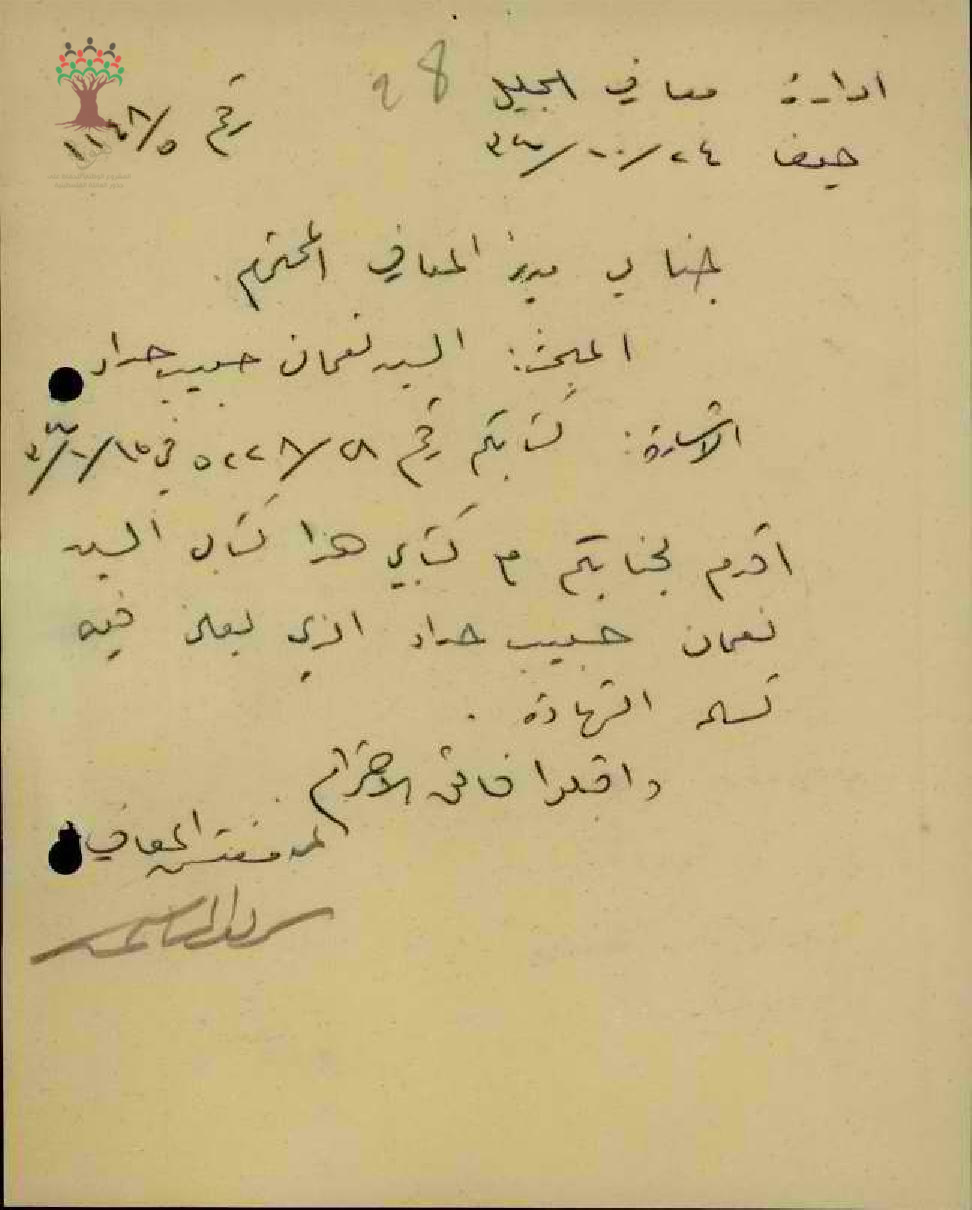 ادارة معارف الجليل 98
حيفا ٢٤/١٠/٣٣ رقم ١١٤٨/٥
جناب مدير المعارف المحترم
المبحث: السيد نعمان حبيب حداد
الاشارة: كتابكم رقم ٥٢٢٨/٢٨ في
اقدم لجنابكم مع كتابي هذا كتاب السيد
نعمان حبيب حداد الذي يعلن فيه
تسلمه الشهادة .
واقبلوا فائق الاحترام
مفتش المعارف